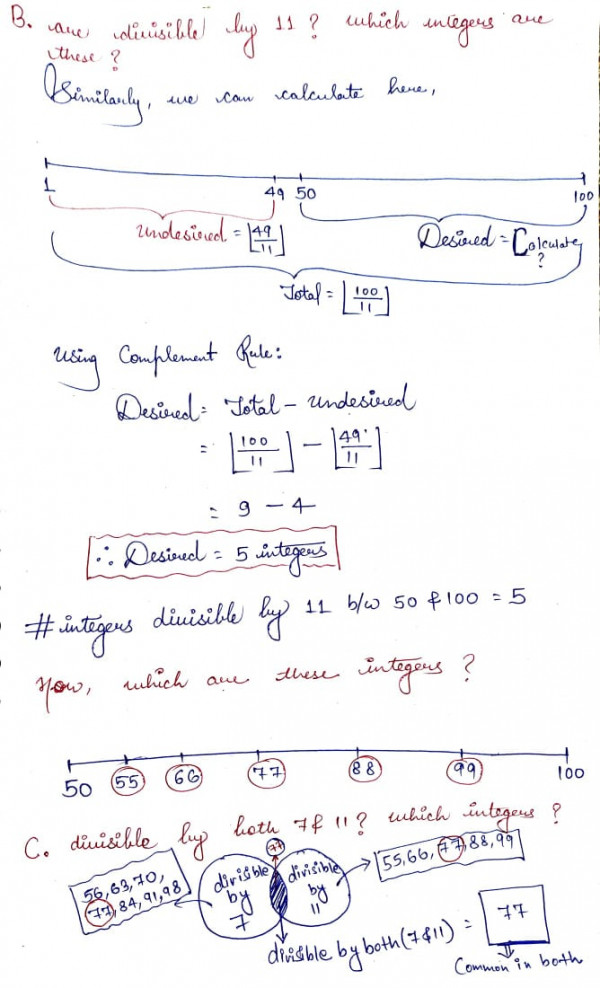 B. are divisible by 11 ? which integers are
these ?
Similarly, we can calculate here,
1 49 50 100
Undesired = ⌊49/11⌋ Desired = Calculate
?
Total = ⌊100/11⌋
Using Complement Rule:
Desired = Total - undesired
= ⌊100/11⌋ - ⌊49/11⌋
= 9 - 4
∴ Desired = 5 integers
# integers divisible by 11 b/w 50 & 100 = 5
Now, which are these integers ?
50 55 66 77 88 99 100
C. divisible by both 7 & 11 ? which integers ?
77
56,63,70,
77,84,91,98
divisible
by
7
divisible
by
11
55,66,77,88,99
divisible by both (7 & 11) = 77
Common in both